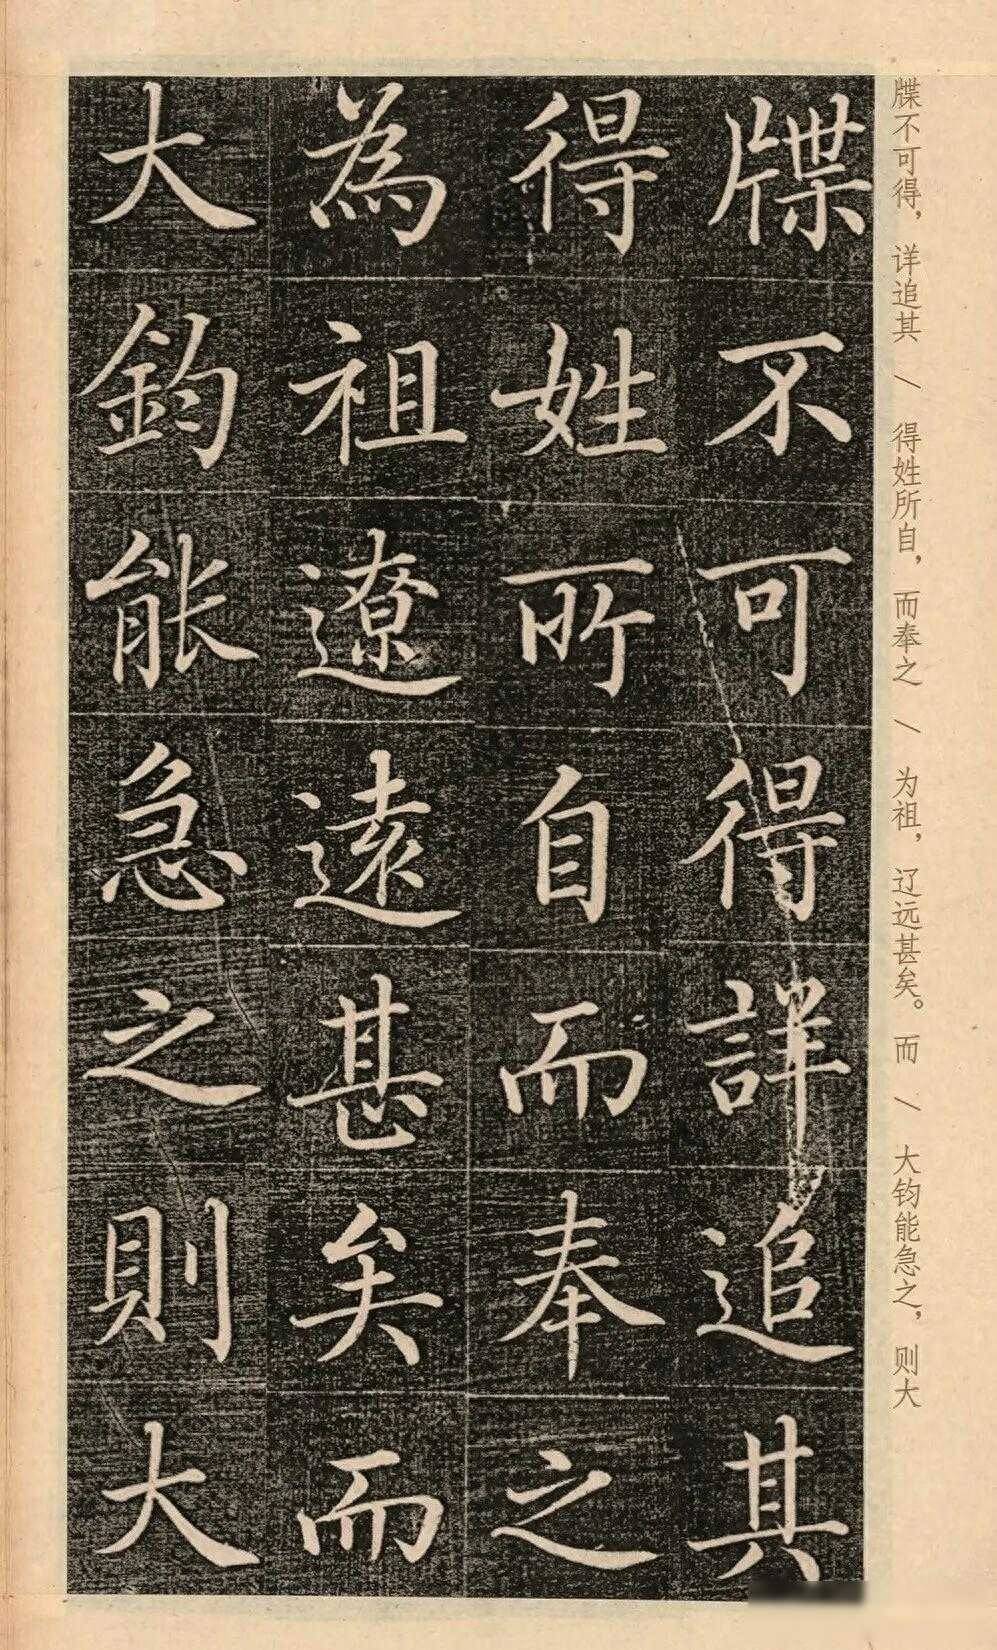 牒不可得，详追其 \ 得姓所自，而奉之 \ 为祖，辽远甚矣。而 \ 大钧能急之，则大
牒不可得詳追其
得姓所自而奉之
為祖遼遠甚矣而
大鈞能急之則大